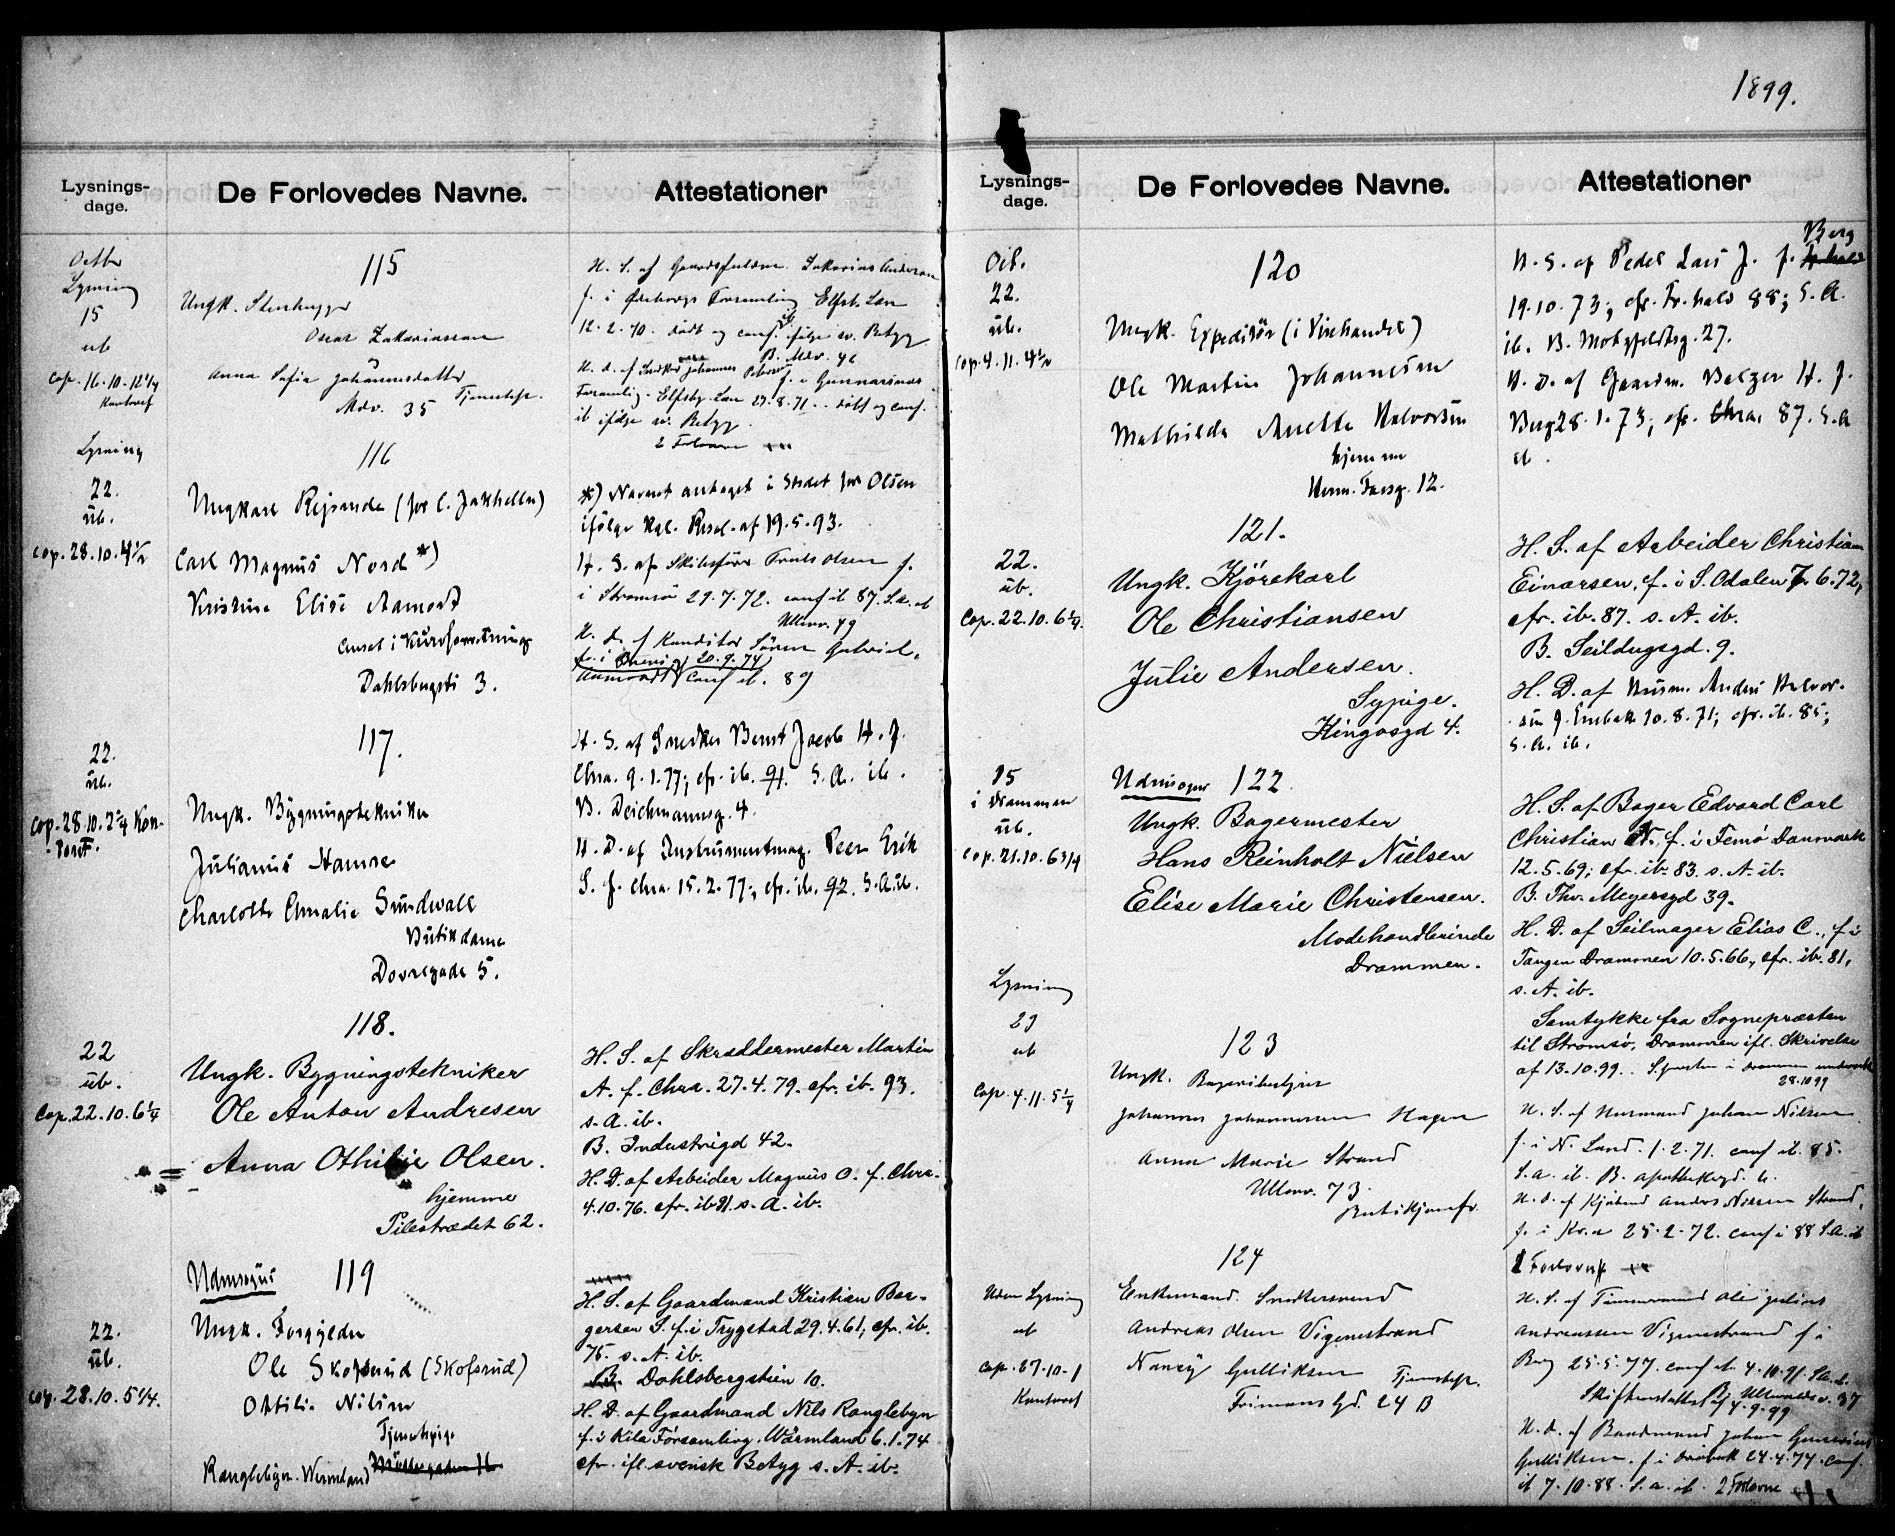 1899.
Lysnings-
dage.
De Forlovedes Navne.
Attestationer
Octbr
Lysning
15
ub
cop. 16.10. 12 1/4
Kontoret
115
Ungk. Stenhugger
Oscar Zakariasson
Anna Sofia Johannesdotter
Tjenestep.
Mdv. 35
H. S. af Zakarias Anderson
f. i Forsamling Elfsb. Län
12.2.70. født og conf. ifølge sv. Betyg
B. Mdv. 46
H. d. af Johannes f. i Gunnarsnäs
Forsamlig. Elfsbg. Län 27.8.71 .. født og conf.
ib ifølge sv. Betyg.
2 Forlovere
Lysning
22.
üb.
cop. 28.10. 4 1/2
116
Ungkarl Rejsende (for C. Jakhelln)
Carl Magnus Nord *)
Kristine Elise Aamodt
ansat i
Dahlsbergsti 3.
*) Navnet antaget i Stedet for Olsen
ifølge Kgl. Resol. af 19.5.93.
H. S. af Skibsfører Truls Olsen f.
i Strømsø 29.7.72. conf ib 87. S.a. ib
Ullnv. 49
H. d. af Konditor Søren Gabriel
f. i 20.9.74
Aamodt conf ib. 89
22.
üb.
cop. 28.10. 2 1/4 Kon-
toret.
117.
Ungk. Bygningstekniker
Julianus Hansen
Charlotte Amalie Sundwall
Butikdame
Dovregade 5.
H. S. af Snedker Bernt Jacob H. f.
Chra. 9.1.77; cfr. ib. 91. S. A. ib.
B. Deichmannsg. 4.
H. D. af Instrumentmag. Peer Erik
S. f. Chra 15.2.77; cfr. ib. 92. S.A.ib.
22
üb.
Cop. 22.10. 6 1/4
118.
Ungk. Bygningstekniker
Ole Anton Andresen
Anna Othilie Olsen.
hjemme
Pilestrædet 62.
H. S. af Skræddermester Martin
A. f. Chra. 27.4.79. cfr. ib. 93.
s. A. ib.
B. Industrigd 42.
H. D. af Arbeider Magnus O. f. Chra.
4.10.76. cfr. ib 91. s. A. ib.
22.
üb.
cop. 28.10. 5 1/4.
Udensogns 119
Ungk. Forgylder
Ole Skofsrud (Skofsrud)
Ottilie Nilsen
Tjenestepige
Ranglebyn. Wermland
H. S. af Gaardmand Kristian Bor-
gersen S. f. i Trygstad 29.4.61; cfr. ib.
76. s. A. ib.
B. Dahlsbergstien 10.
H. D. af Gaardmand Nils Ranglebyn
f. i Kila Församling, Wärmland 6.1.74
cfr. ifl. svensk Betyg s. A. ib.
Lysnings-
dage.
De Forlovedes Navne.
Attestationer
Oct.
22.
üb.
cop. 4.11. 4 1/2
120
Ungk. Expeditör (i Vinhandel)
Ole Martin Johannesen
Mathilde Anette Halvorsen
hjemme
Herm. Fossg. 12.
H. S. af Pedel Lars J. f. Berg
19.10.73; cfr. Fr.hald 88; S. A.
ib. B. Motzfeldtsg. 27.
H. D. af Gaardm. H. f.
Berg 28.1.73; cfr. Chra. 87. S. A
ib.
22.
üb.
Cop. 22.10. 6 1/4.
121.
Ungk. Kjörekarl
Ole Christiansen
Julie Andersen.
Sypige.
Kingosgd 4.
H. S. af Arbeider Christian
Einarsen, f. i S. Odalen 7.6.72,
cfr. ib. 87. s. A. ib.
B. Seildugsgd. 9.
H. D. af Husm. Anders Halvor-
sen f. Enebak 10.8.71; cfr. ib. 85;
S. A. ib.
15
i Drammen
üb.
Cop. 21.10. 6 3/4
Udensogns 122.
Ungk. Bagermester
Hans Reinholt Nielsen
Elise Marie Christensen.
Modehandlerinde
Drammen.
H. S. af Bager Edvard Carl
Christian N. f. i Femö Danmark
12.5.69; cfr. ib. 83. s. A. ib.
B. Thv. Meyersgd 39.
H. D. af Seilmager Elias C., f. i
Tangen Drammen 10.5.66, cfr. ib. 81,
s. A. ib.
Samtykke fra Sognepræsten
til Strømsø, Drammen ifl. Skrivelse
af 13.10.99. i Drammen underrettet
28.10 99
Lysning
29
ub
Cop. 4.11. 5 1/4
123
Ungk.
Johannes Johannessen Hagen
Anna Marie Strand
Ullnv. 73.
Butikjomfr.
H. S. af Husmand Johan Nilsen
f. i N. Land. 1.2.71. conf ib. 85.
S. a. ib. B. Apothekergd. 6.
H. d. af Anders Nilsen Strand,
f. i Kr.a 25.2.72. conf i 88 S.a. ib
2 Forlovere
Uden Lysning
ub
cop. 27.10. 1
Kontoret
124
Enkemand. Snedkersvend
Andreas Olsen Vigenestrand
Nancy Gulliksen Tjenestep.
Frimans Gd. 24 B
H. S. af Tømmermand Ole Julius
Andreassen Vigenestrand f i
Berg 25.5.77. conf ib. 4.10.91. S.a. ib.
B. Ullevaldsv. 37
Skifteretsattest af 4.9.99
H. d. af Baadmand Johan
Gulliksen. f i Drøbak 24.4.74. conf.
ib 7.10.88. S. a. ib. 2 Forlovere